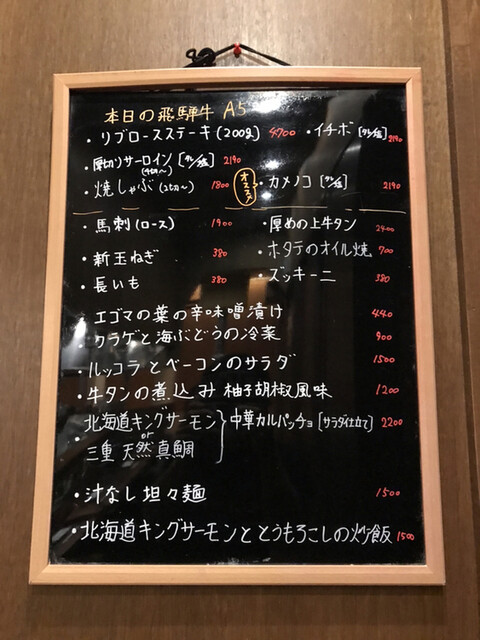 本日の飛騨牛 A5
・リブロースステーキ(200g) 4700 ・イチボ[タレ/塩] 2190
・厚切りサーロイン[タレ/塩] 2190
(4切〜)
・焼しゃぶ(2切〜) 1800 オススメ ・カメノコ[タレ/塩] 2190
・馬刺(ロース) 1900 ・厚めの上牛タン 2400
・新玉ねぎ 380 ・ホタテのオイル焼 700
・長いも 380 ・ズッキーニ 380
・エゴマの葉の辛味噌漬け 440
・クラゲと海ぶどうの冷菜 900
・ルッコラとベーコンのサラダ 1500
・牛タンの煮込み 柚子胡椒風味 1200
・北海道キングサーモン or 三重 天然真鯛 } 中華カルパッチョ[サラダ仕立て] 2200
・汁なし坦々麺 1500
・北海道キングサーモンととうもろこしの炒飯 1500